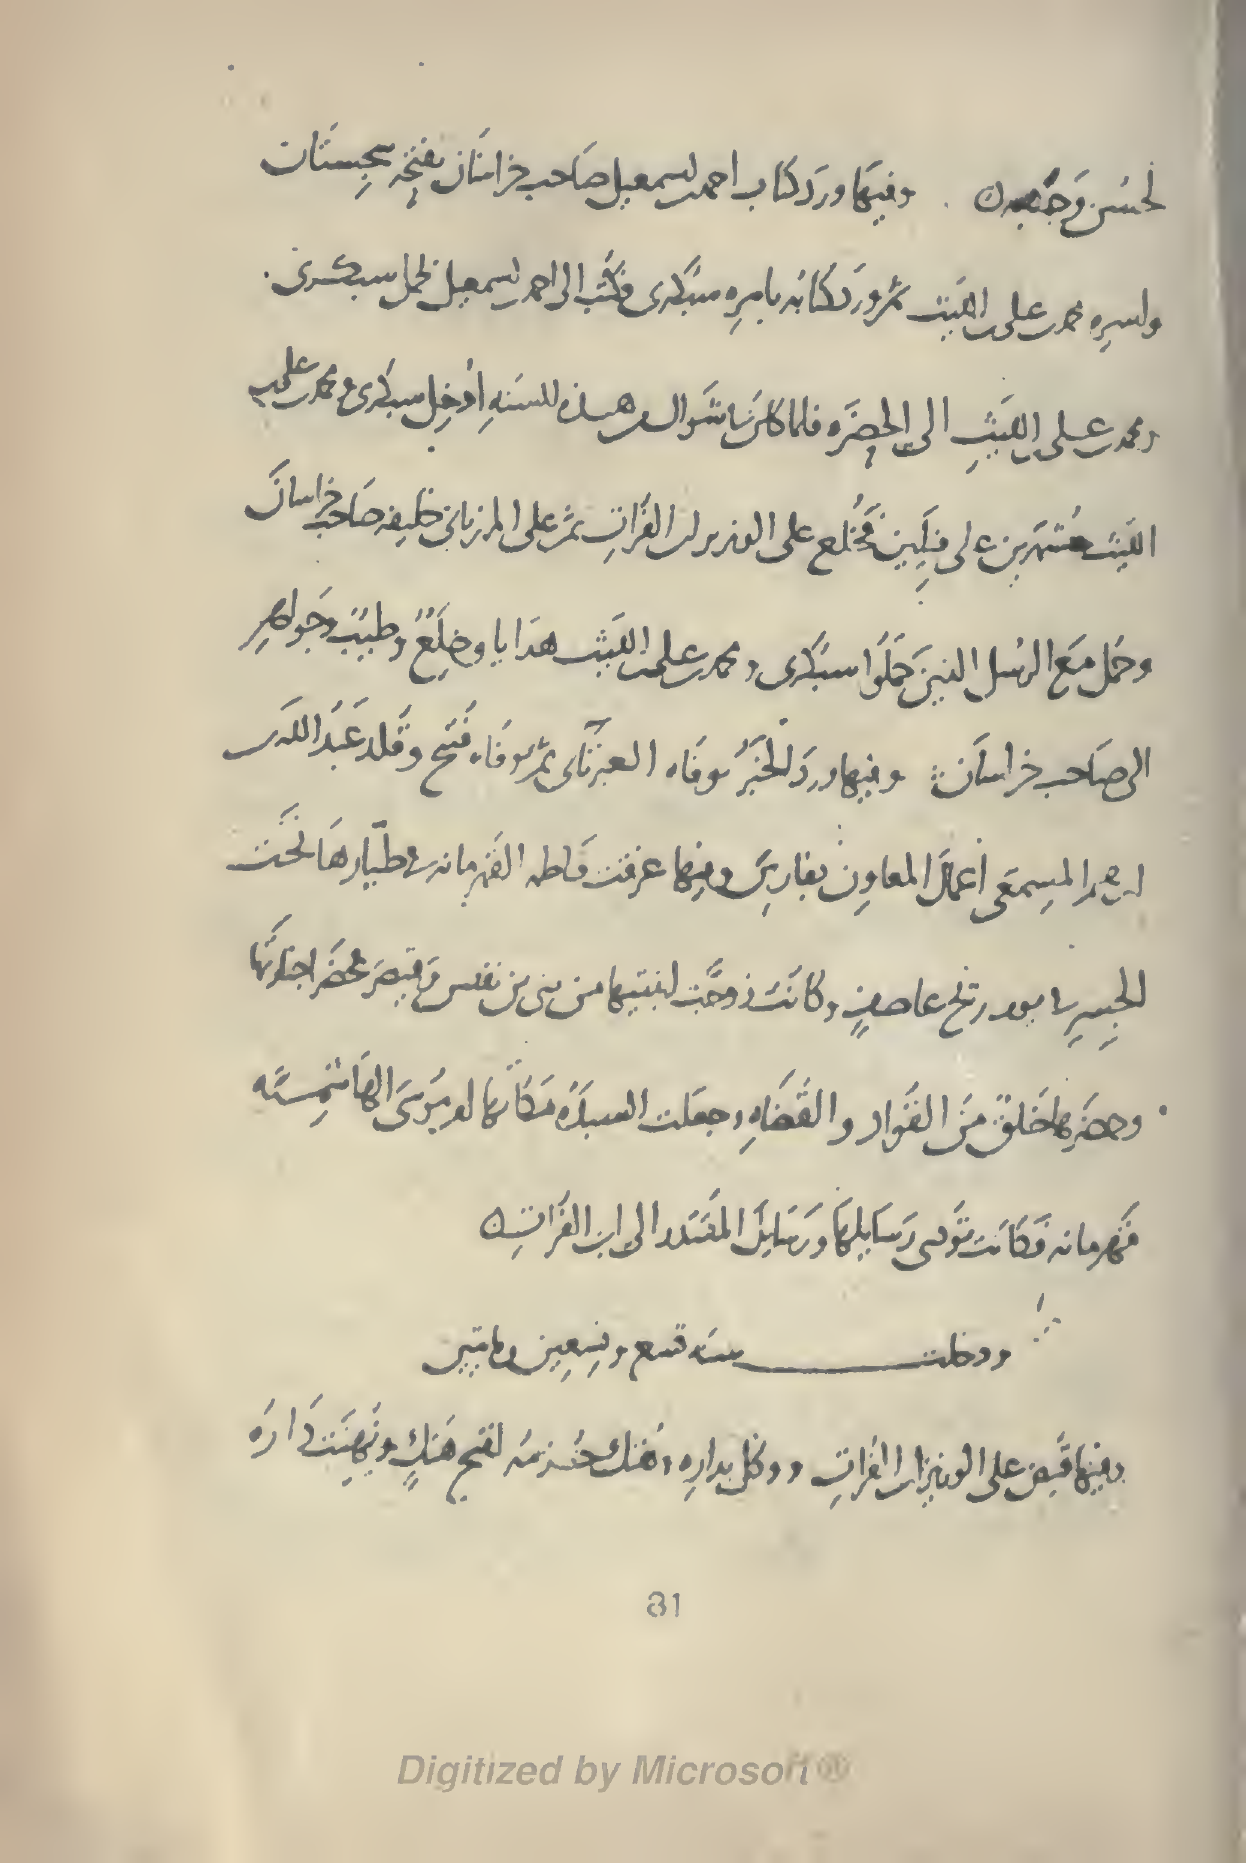 لحسن وجهه وفيها ورد كتاب احمد بن اسمعيل صاحب خراسان بفتحه سجستان
واسره محمد بن علي بن الليث ثم ورد كتابه باسره سبكرى فكتب الى احمد بن اسمعيل بحمل سبكرى
ومحمد بن علي بن الليث الى الحضره فلما كان شوال من هذه السنه أدخل سبكرى ومحمد بن علي بن
الليث مشتهرين على فيلين فخلع على الوزير ابن الفرات ثم على المرزباني خليفه صاحب خراسان
وحمل مع الرسل الذين حملوا سبكرى ومحمد بن علي بن الليث هدايا وخلع وطيب وجواهر
الى صاحب خراسان وفيها ورد الخبر بوفاه العبرتاى ثم بوفاه فتح وقلد عبد الله بن
ابرهيم المسمعي أعمال المعاون بفارس وفيها غرقت فاطمه القهرمانه في طيارها تحت
الجسر في يوم ريح عاصف وكانت زوجت ابنتيها من بني بن نفيس وقيصر فحضرا جنازتها
وحضرها خلق من القواد والقضاه وجعلت السيده مكانها ام موسى الهاشميه
قهرمانه فكانت تؤدى رسايلها ورسايل المقتدر الى ابن الفرات
ودخلت سنه تسع وتسعين ومايتين
وفيها قبض على الوزير ابن الفرات ووكل بداره وهتك حرمه اقبح هتك ونهبت داره
81
Digitized by Microsoft®